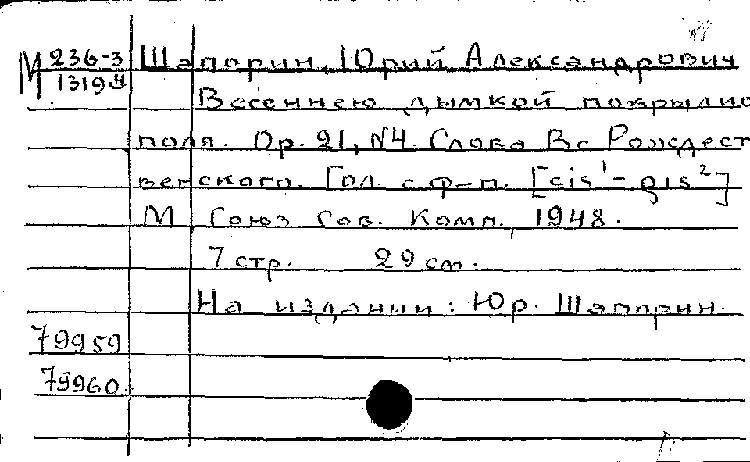 М 236-3 Шапорин, Юрий Александрович
1319ш
Весеннею дымкой покрылис
поля. Op. 21, N4. Слова Вс Рождест
венского. Гол. с ф-п. [cis¹-gis²]
М Союз Сов. Комп. 1948.
7 стр. 29 см.
На издании: Юр. Шапорин.
79959
79960